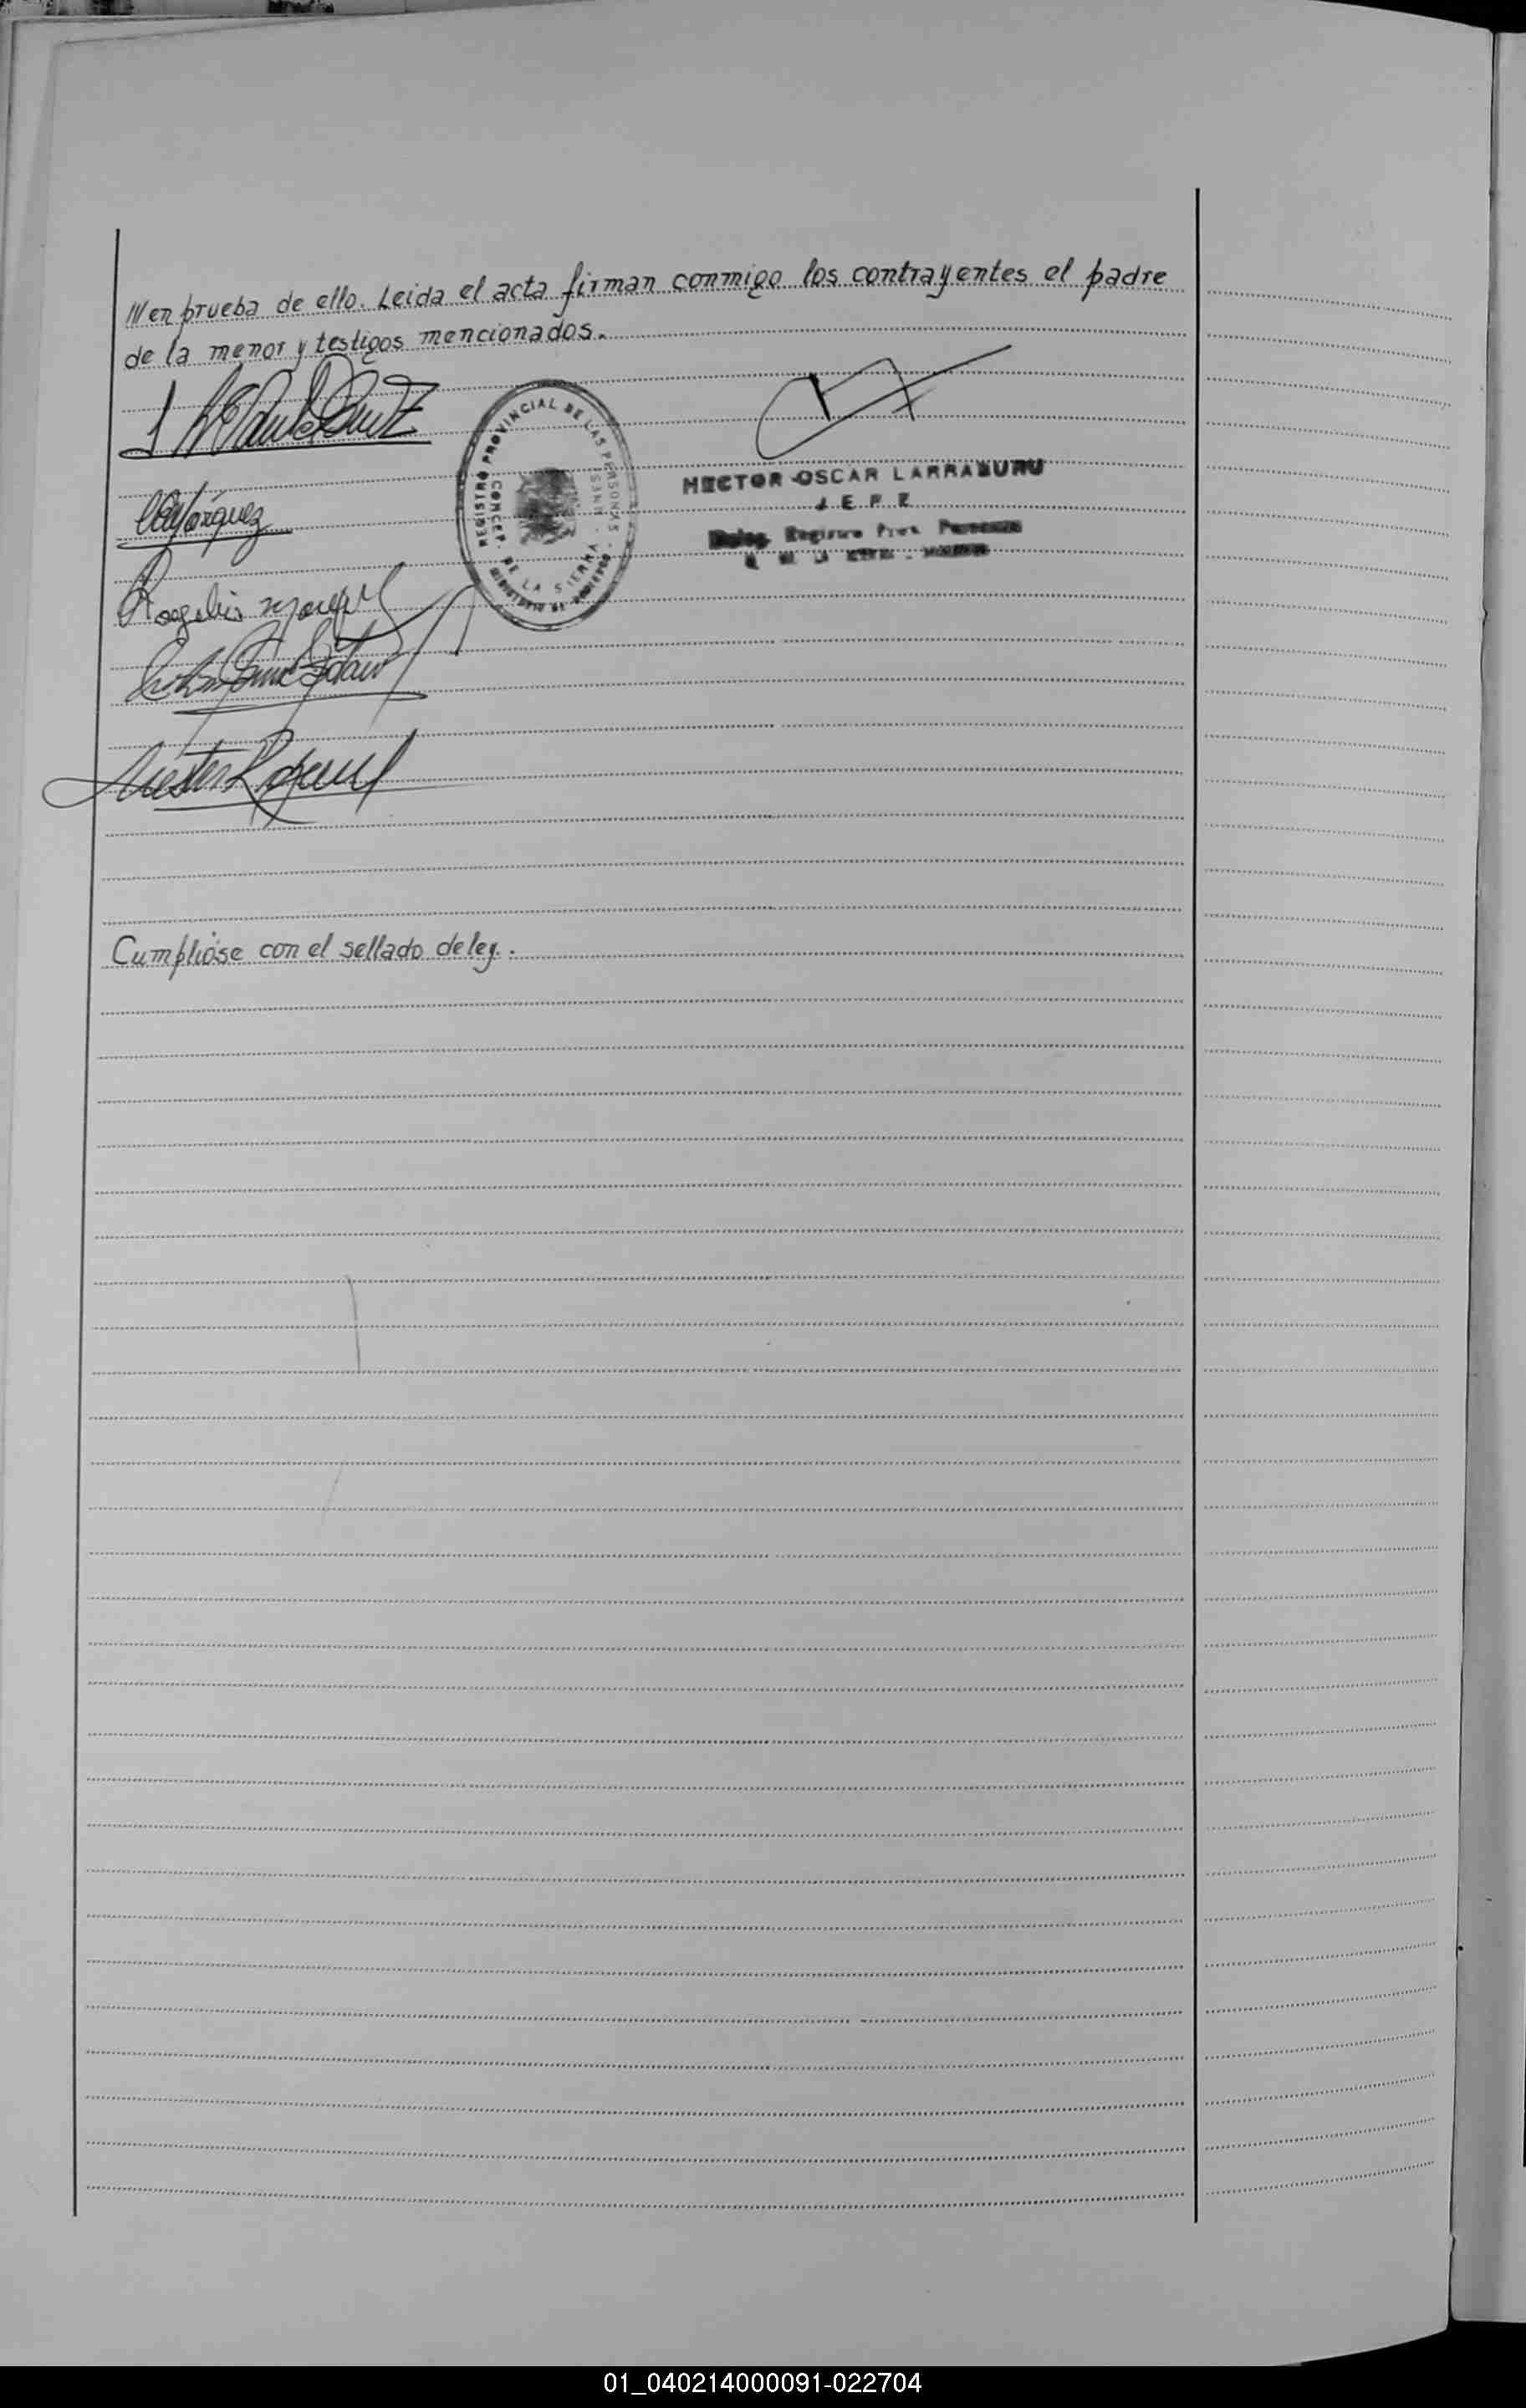 /// en prueba de ello. Leida el acta firman conmigo los contrayentes el padre
de la menor y testigos mencionados.
REGISTRO PROVINCIAL DE LAS PERSONAS
CONCEP. DE LA SIERRA
HECTOR OSCAR LARRABURU
J E F E
Deleg. Registro Prov. Personas
Márquez
Rogelio
Cumplióse con el sellado de ley.
01_040214000091-022704